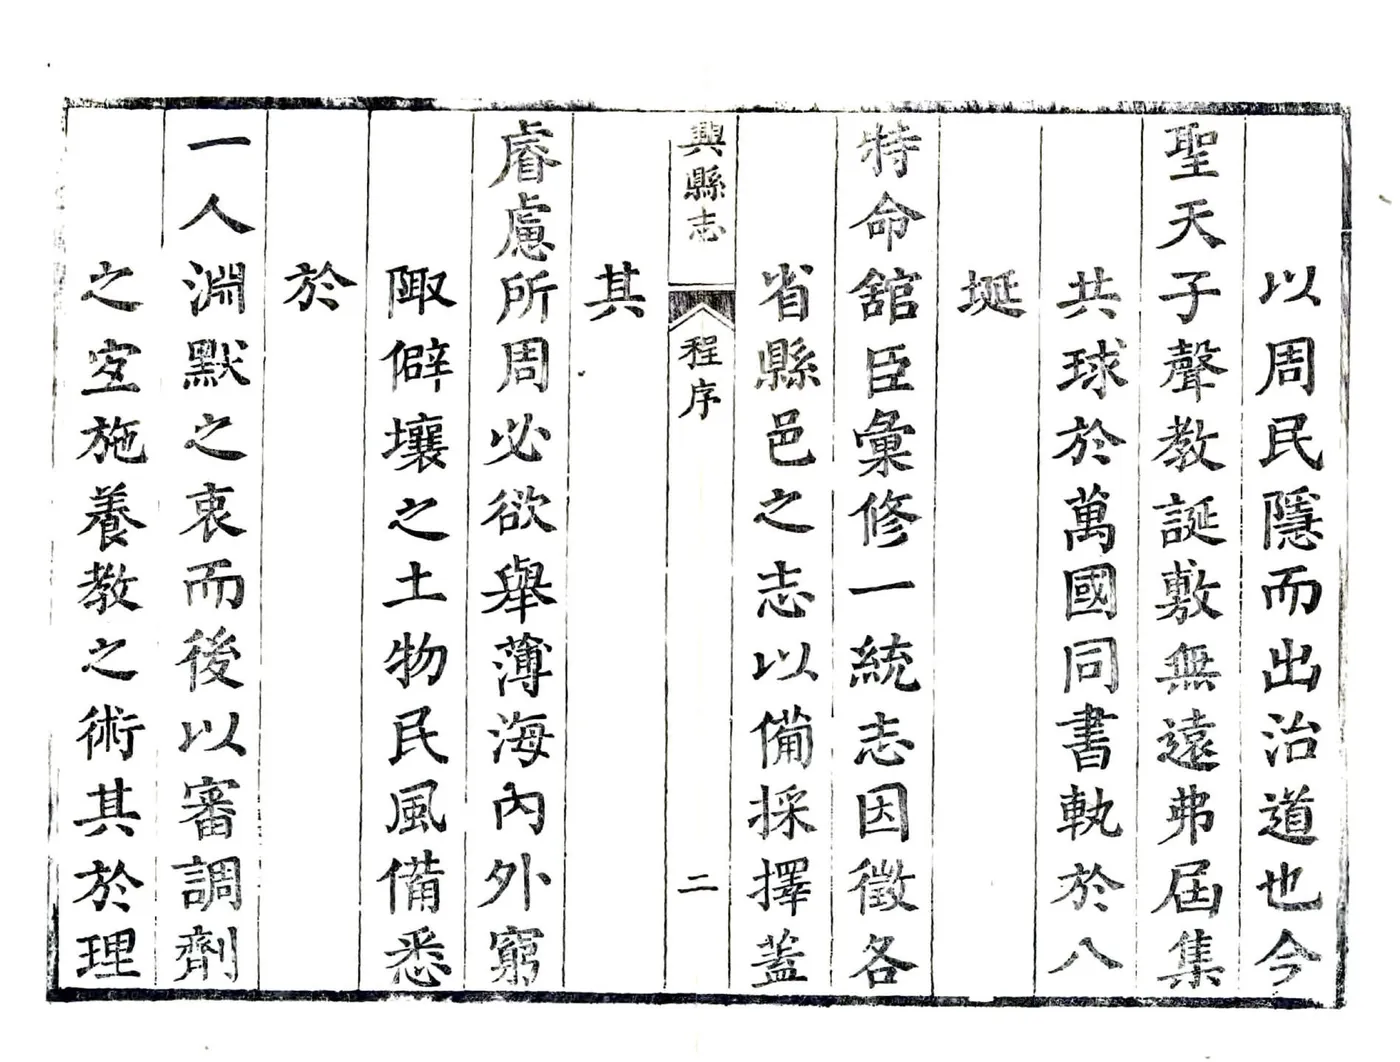 以周民隱而出治道也今
聖天子聲教誕敷無遠弗屆集
共球於萬國同書軌於八
埏
特命舘臣彙修一統志因徵各
省縣邑之志以備採擇蓋
興縣志
程序
二
其
睿慮所周必欲舉薄海內外窮
陬僻壤之土物民風備悉
於
一人淵默之衷而後以審調劑
之宐施養教之術其於理